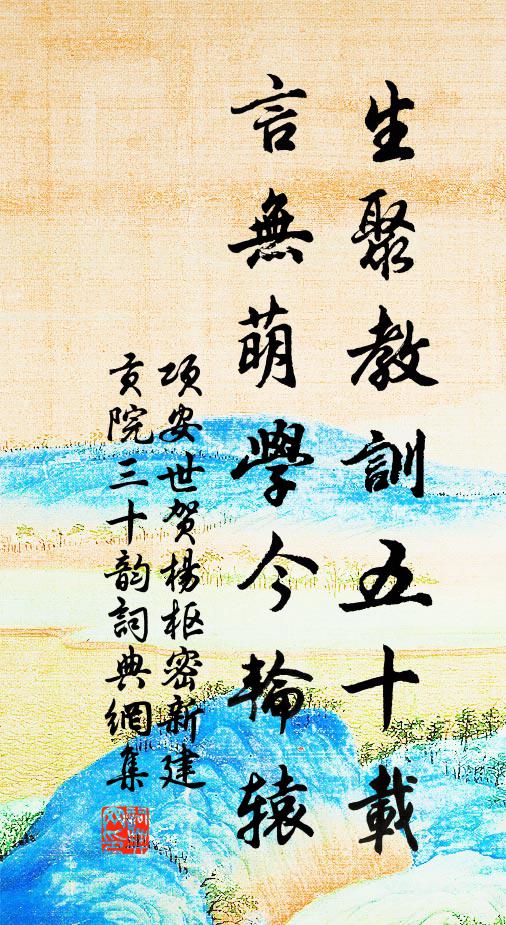 生聚教訓五十載
言無萌學今輪辕
项安世贺楊枢密新建
贡院三十韵詞典網集